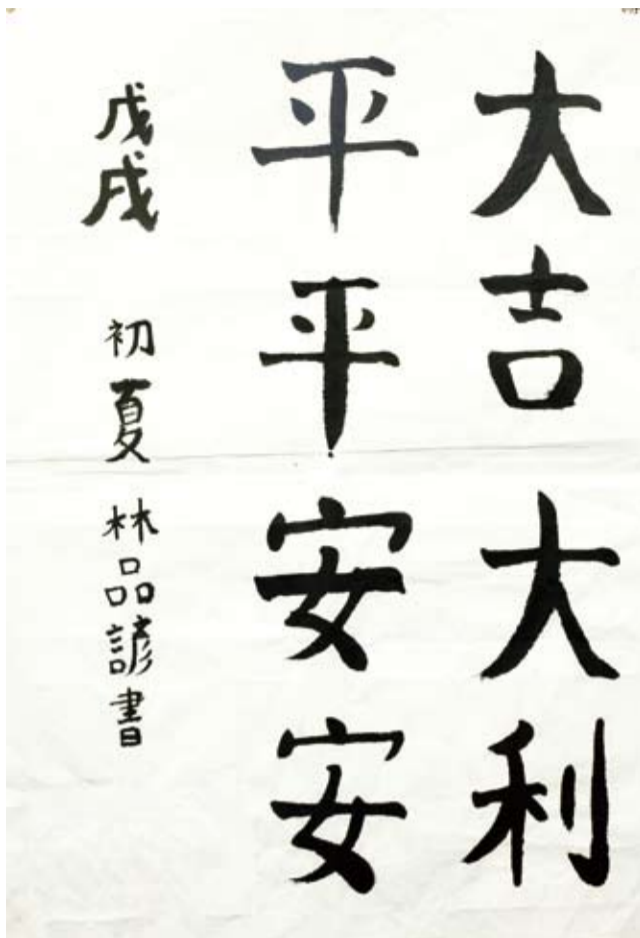 大吉大利
平平安安
戊戌 初夏 林品諺書